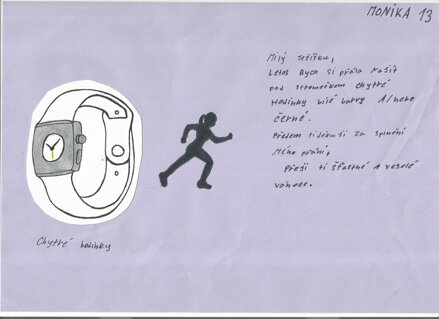 MONIKA 13
Milý Ježíšku,
Letos bych si přála najít
pod stromečkem chytré
hodinky bílé barvy A/nebo
černé.
Předem ti děkuji za splnění
mého přání,
Přeji ti šťastné A veselé
vánoce.
Chytré hodinky